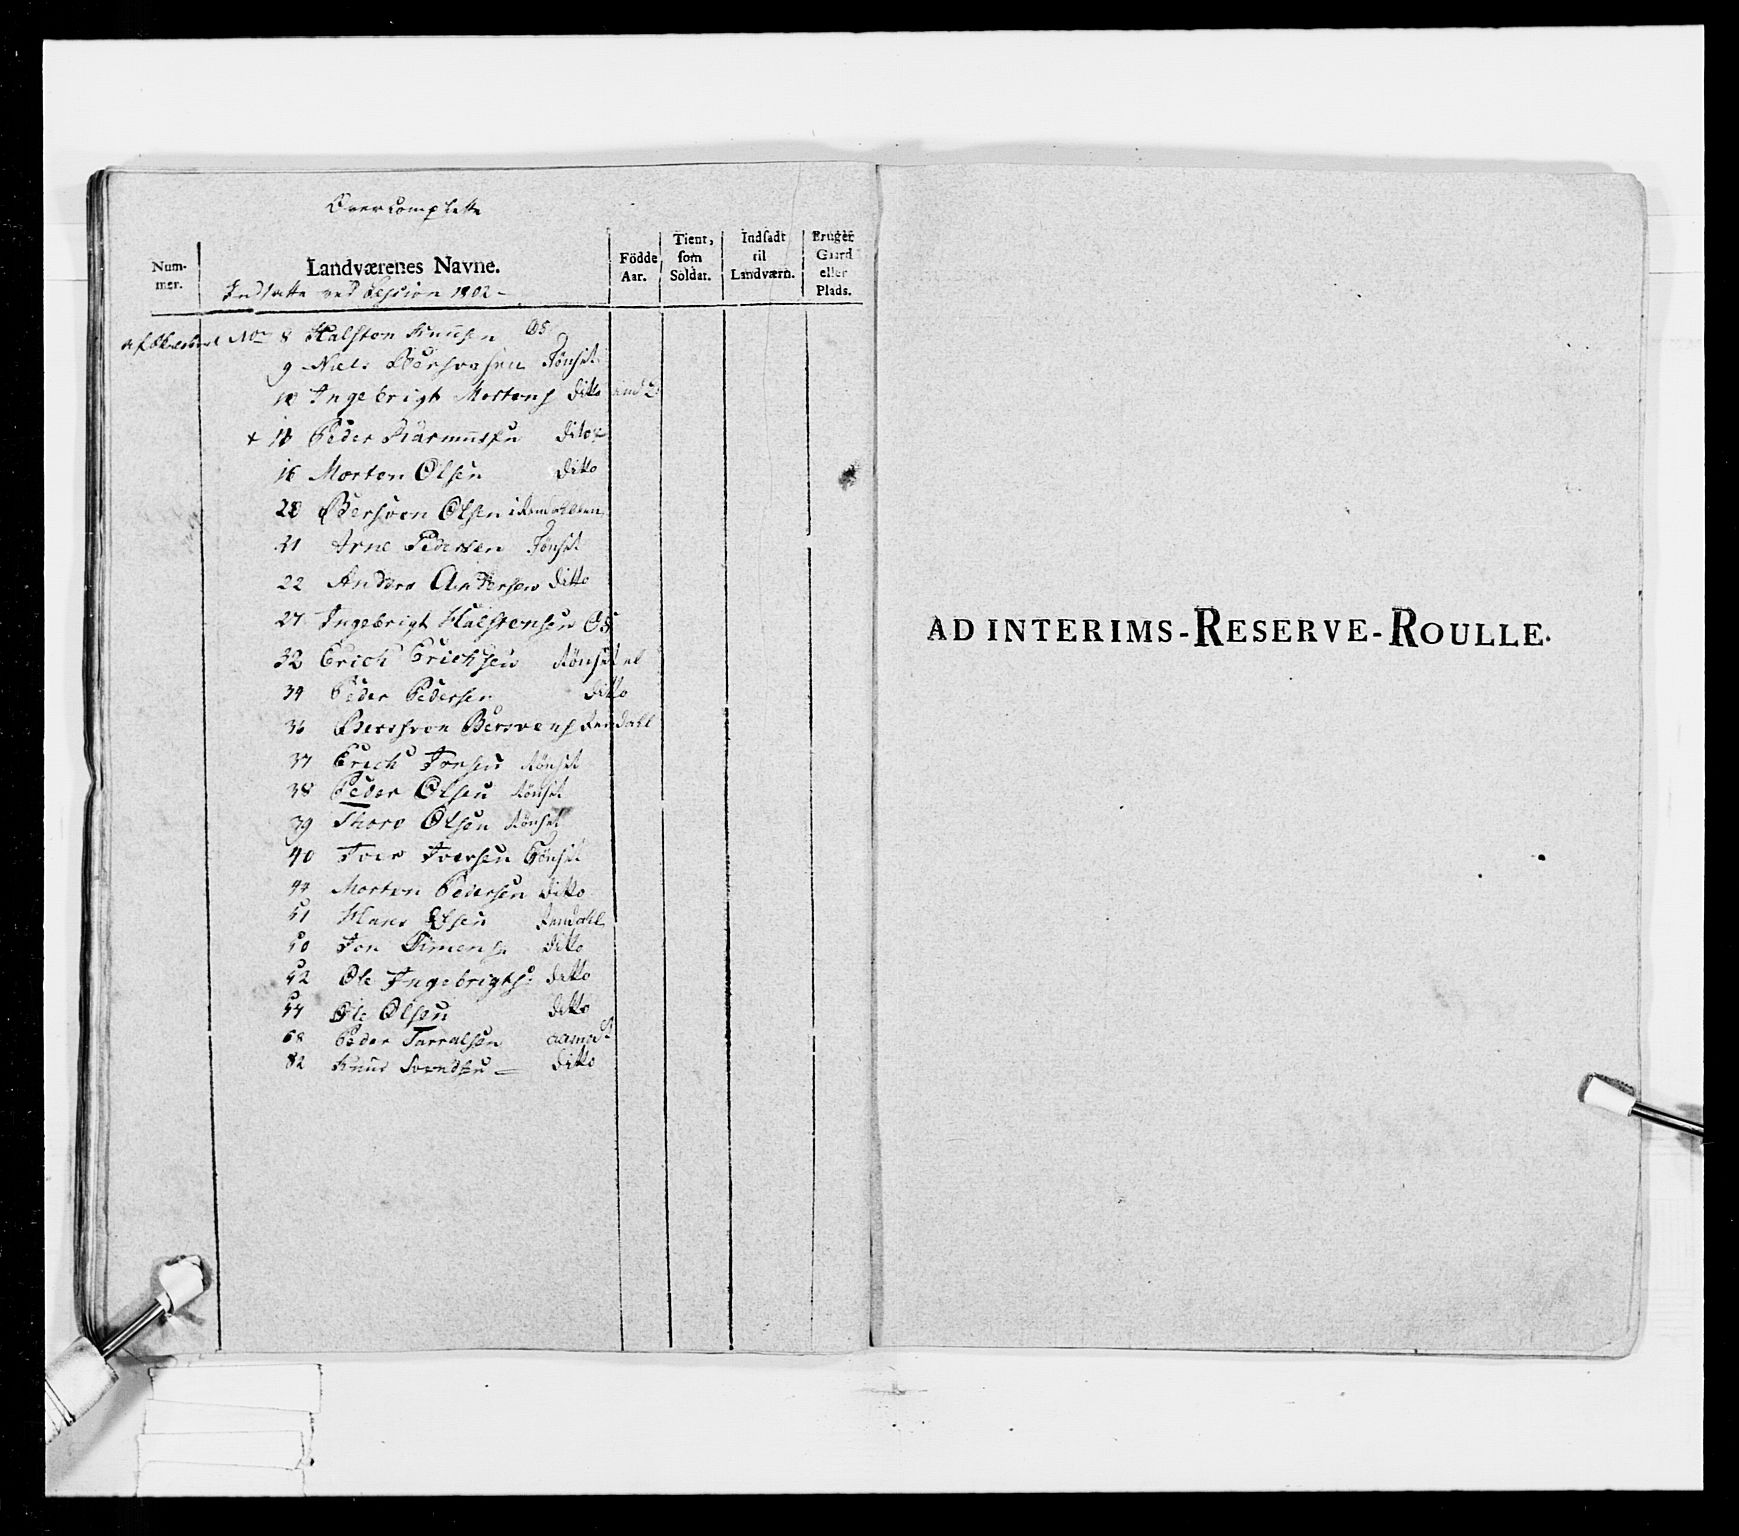 Overcomplette
Num-
mer.
Landværenes Navne.
Födde
Aar.
Tient,
som
Soldat.
Indsadt
til
Landværn.
Bruger
Gaard
eller
Plads.
Indsatte ved Session 1802 -
No 8 Halsten Knudsen Os
9 Niels Bersvensen Tönset
Ingebrigt Mortens Ditto
+ Peder Rasmussen Dito
16 Morten Olsen Ditto
Bersven Olsen i Rendalen
21 Arne Pedersen Tönset
22 Anders Andersen Ditto
27 Ingebrigt Halstensen Os
32 Erich Erichsen Tönset
34 Peder Pedersen Ditto
36 Bersven Bersvens Rendall
37 Erich Jonsen Tönset
38 Peder Olsen Tönset
39 Thore Olsen Tönset
40 Iver Iversen Tönset
44 Morten Pedersen Ditto
51 Hans Olsen Rendall
50 Jon Simens Ditto
52 Ole Ingebrigts: Ditto
54 Ole Olsen Ditto
68 Peder Tarralsen
82 Knud Svendsen - Ditto
AD INTERIMS-RESERVE-ROULLE.